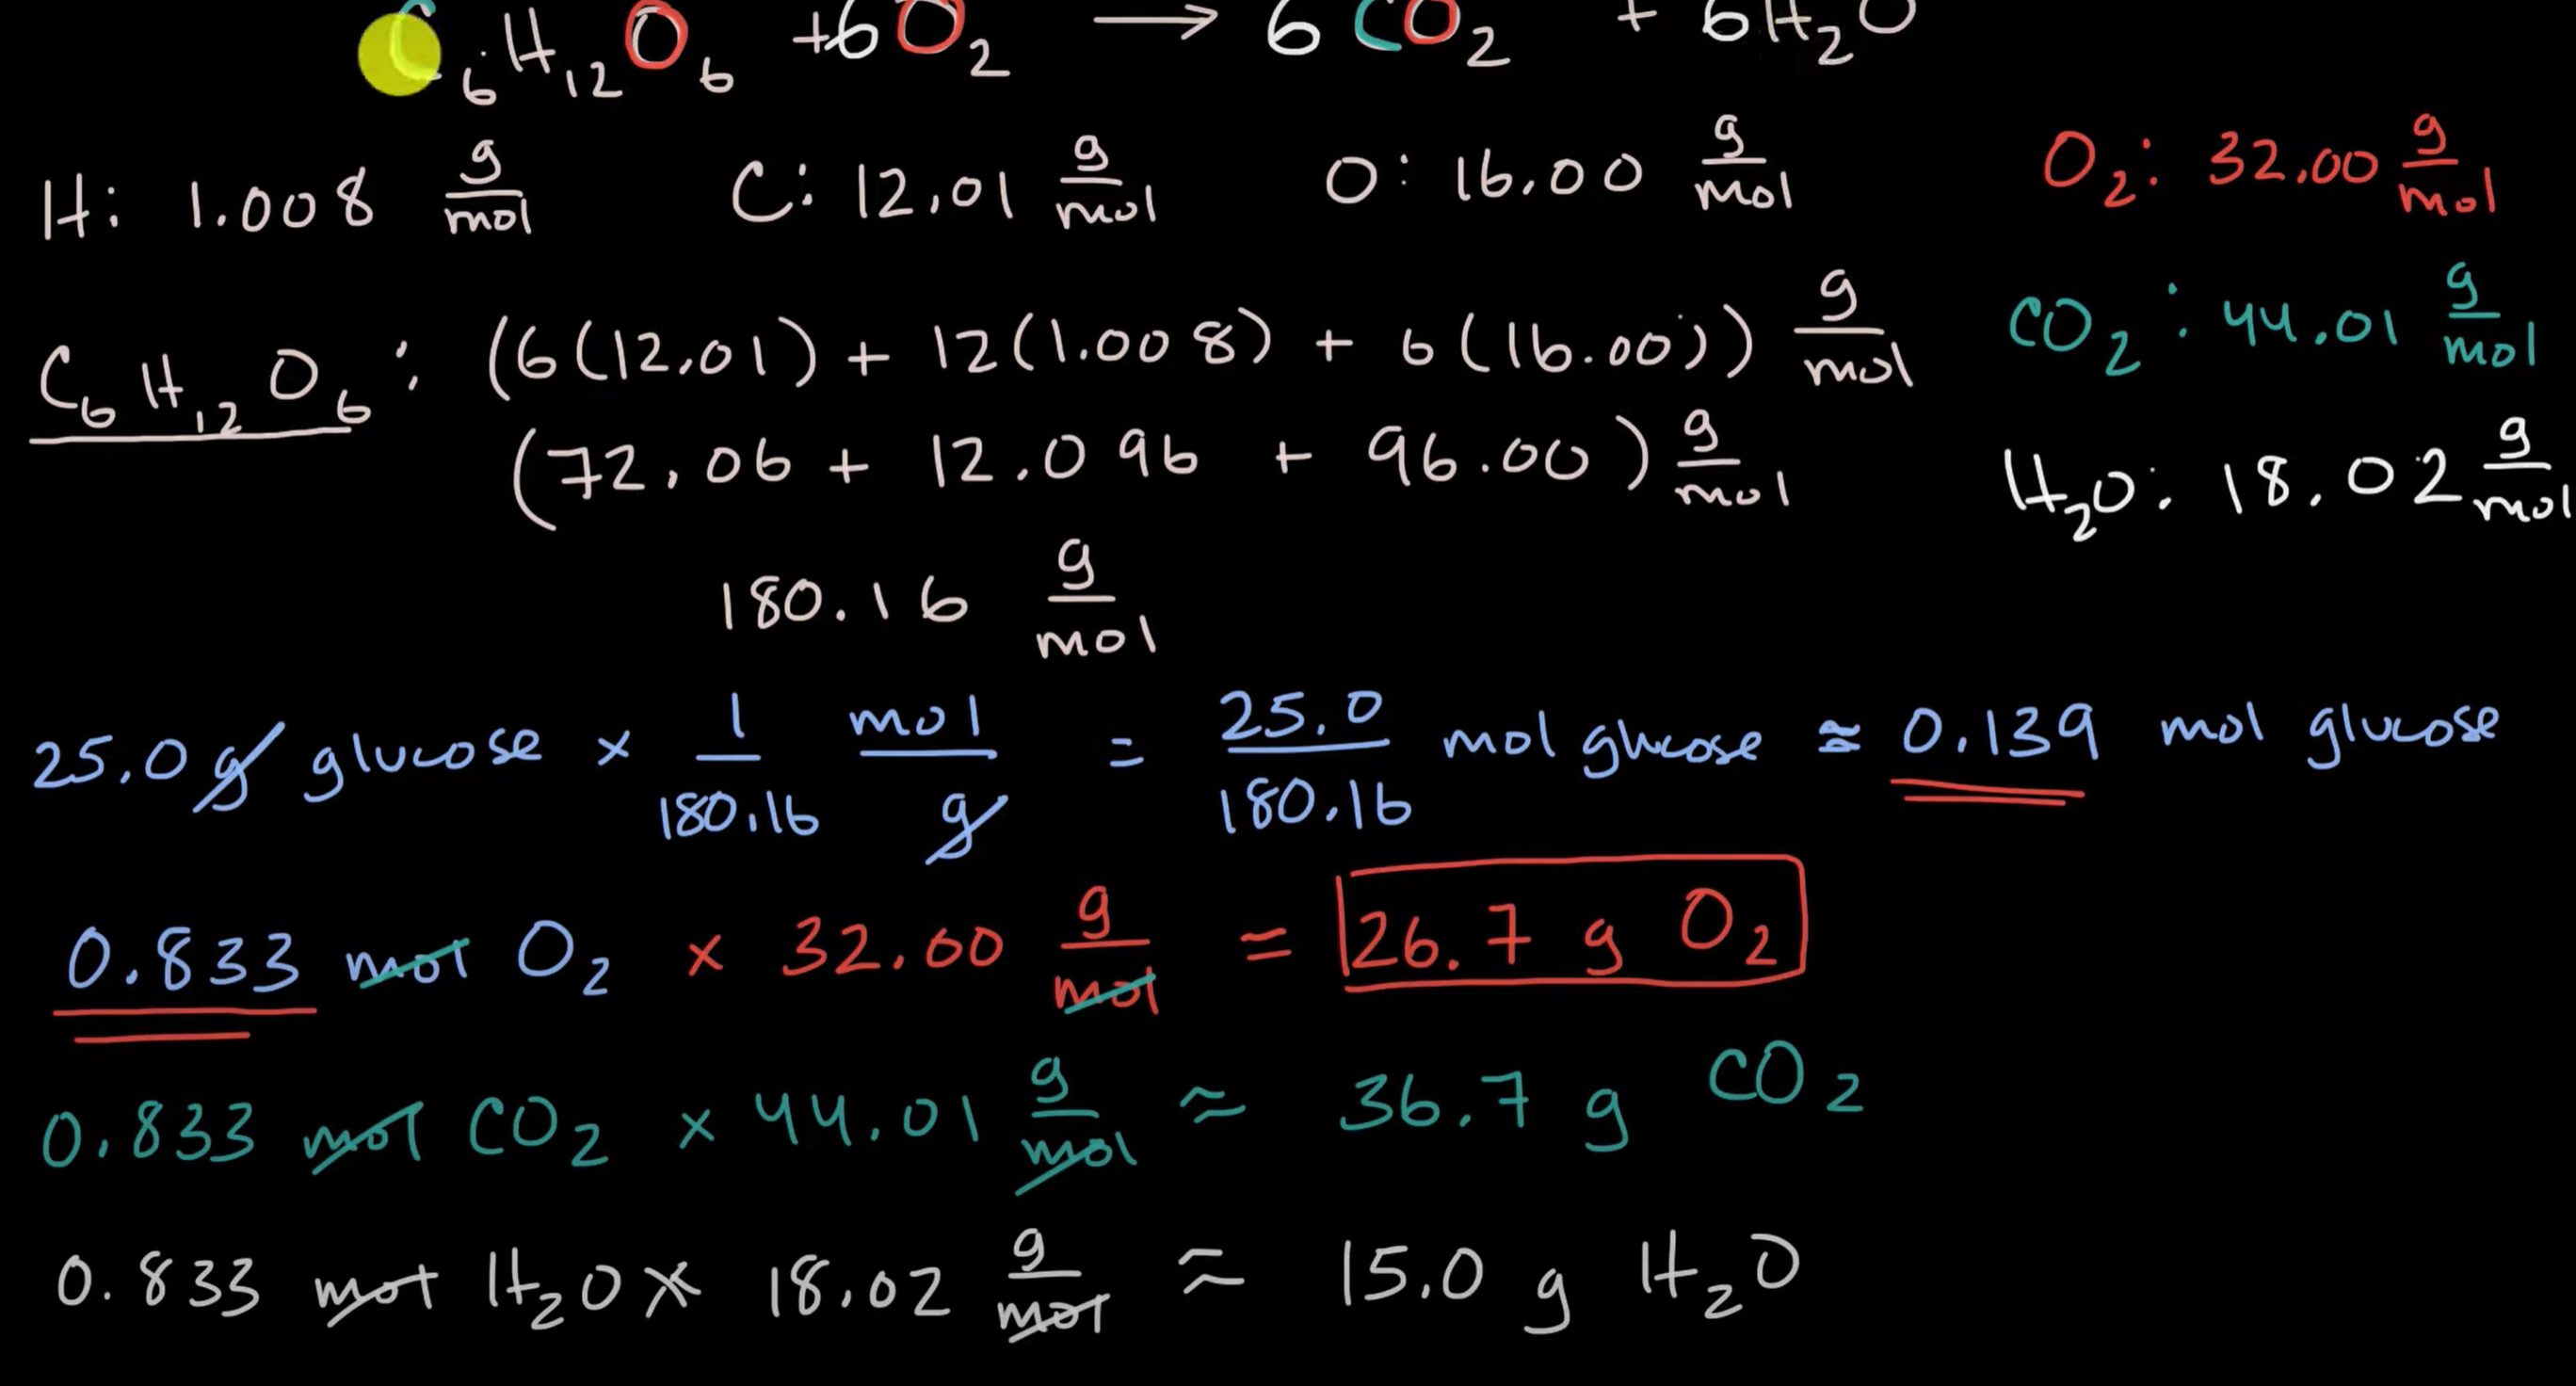 C₆H₁₂O₆ + 6O₂ → 6CO₂ + 6H₂O
H: 1.008 g/mol C: 12.01 g/mol O: 16.00 g/mol O₂: 32.00 g/mol
C₆H₁₂O₆: (6(12.01) + 12(1.008) + 6(16.00)) g/mol CO₂: 44.01 g/mol
(72.06 + 12.096 + 96.00) g/mol H₂O: 18.02 g/mol
180.16 g/mol
25.0 g glucose × 1/180.16 mol/g = 25.0/180.16 mol glucose ≈ 0.139 mol glucose
0.833 mol O₂ × 32.00 g/mol = 26.7 g O₂
0.833 mol CO₂ × 44.01 g/mol ≈ 36.7 g CO₂
0.833 mol H₂O × 18.02 g/mol ≈ 15.0 g H₂O